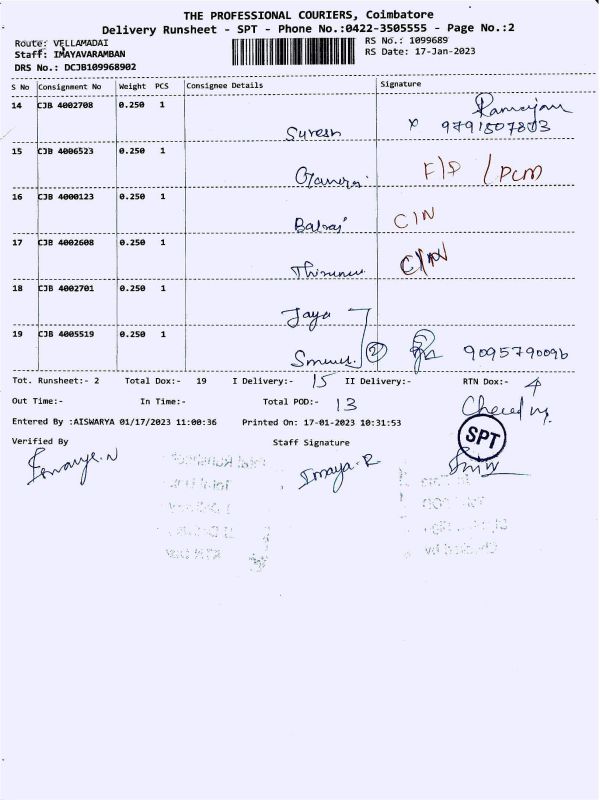 THE PROFESSIONAL COURIERS, Coimbatore
Delivery Runsheet - SPT - Phone No.:0422-3505555 - Page No.:2
Route: VELLAMADAI RS No.: 1099689
Staff: IMAYAVARAMBAN RS Date: 17-Jan-2023
DRS No.: DCJB109968902
S No Consignment No Weight PCS Consignee Details Signature
14 CJB 4002708 0.250 1
Suresh x 9791507813
15 CJB 4006523 0.250 1
F/P / PCM
16 CJB 4000123 0.250 1
Balraj C/N
17 CJB 4002608 0.250 1
C/N
18 CJB 4002701 0.250 1
Jaya
19 CJB 4005519 0.250 1
2 9095790096
Tot. Runsheet:- 2 Total Dox:- 19 I Delivery:- 15 II Delivery:- RTN Dox:- 4
Out Time:- In Time:- Total POD:- 13
Entered By :AISWARYA 01/17/2023 11:00:36 Printed On: 17-01-2023 10:31:53
SPT
Verified By Staff Signature
Imaya.R